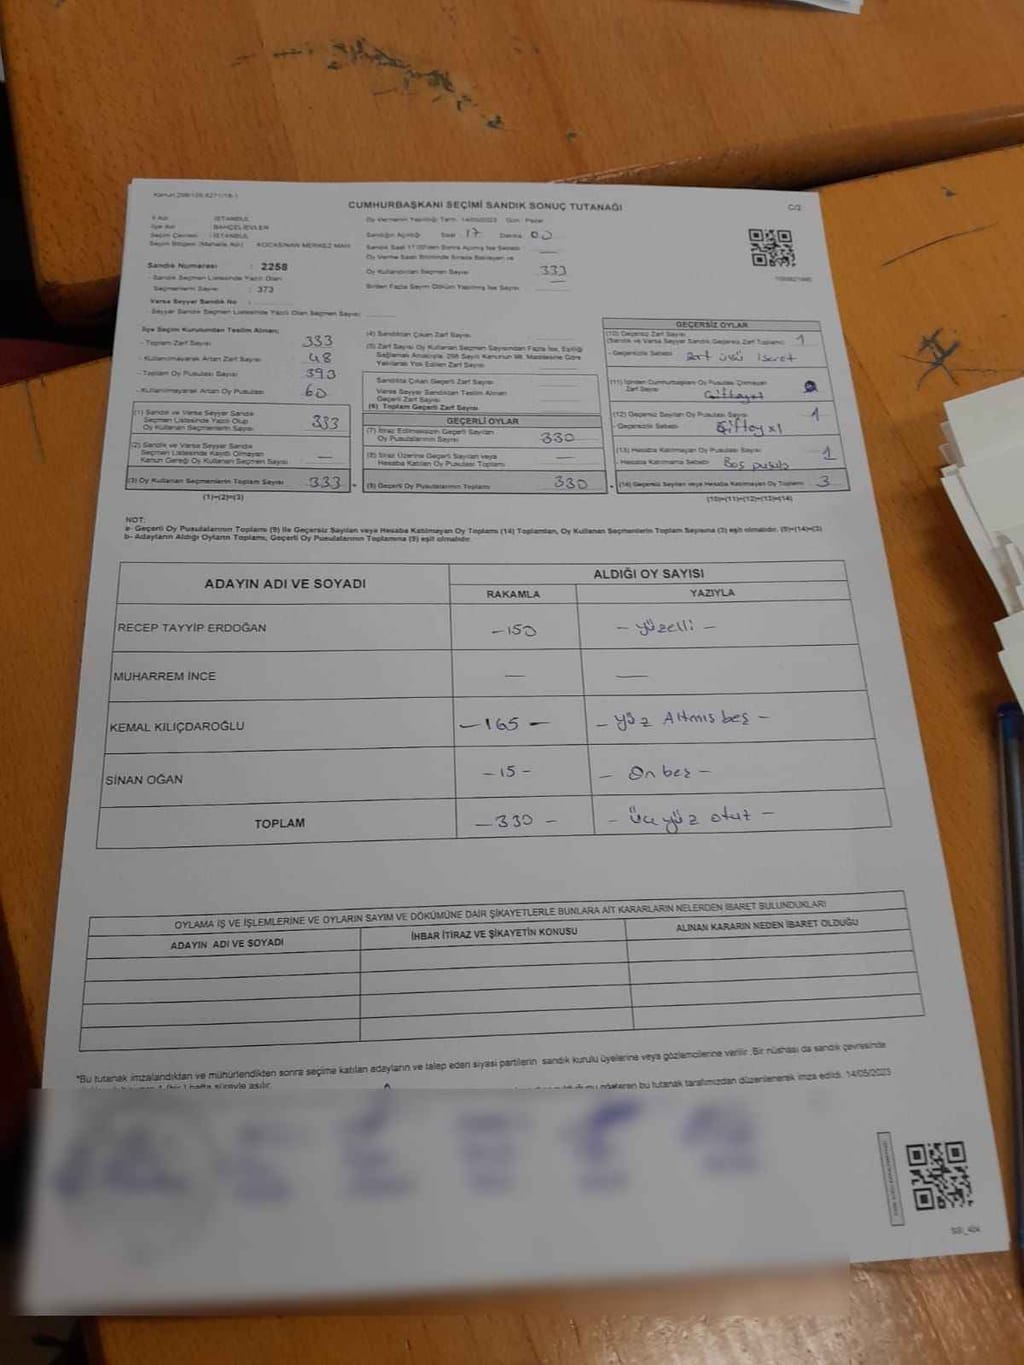 Kanun:298/129,6271/18-1
CUMHURBAŞKANI SEÇİMİ SANDIK SONUÇ TUTANAĞI
C/2
İl Adı : İSTANBUL
İlçe Adı : BAHÇELİEVLER
Seçim Çevresi : İSTANBUL
Seçim Bölgesi (Mahalle Adı) : KOCASİNAN MERKEZ MAH.
Sandık Numarası : 2258
- Sandık Seçmen Listesinde Yazılı Olan
Seçmenlerin Sayısı : 373
Varsa Seyyar Sandık No :
- Seyyar Sandık Seçmen Listesinde Yazılı Olan Seçmen Sayısı :
Oy Vermenin Yapıldığı Tarih: 14/05/2023 Gün: Pazar
Sandığın Açıldığı Saat 17 Dakika 00
Sandık Saat 17.00'den Sonra Açılmış İse Sebebi —
Oy Verme Saati Bitiminde Sırada Bekleyen ve
Oy Kullandırılan Seçmen Sayısı 333
Birden Fazla Sayım Döküm Yapılmış İse Sayısı —
İlçe Seçim Kurulundan Teslim Alınan;
- Toplam Zarf Sayısı 333
- Kullanılmayarak Artan Zarf Sayısı 48
- Toplam Oy Pusulası Sayısı 393
- Kullanılmayarak Artan Oy Pusulası 60
(1) Sandık ve Varsa Seyyar Sandık
Seçmen Listesinde Yazılı Olup
Oy Kullanan Seçmenlerin Sayısı 333
(2) Sandık ve Varsa Seyyar Sandık
Seçmen Listesinde Kayıtlı Olmayan
Kanun Gereği Oy Kullanan Seçmen Sayısı —
(3) Oy Kullanan Seçmenlerin Toplam Sayısı 333
(1)+(2)=(3)
(4) Sandıktan Çıkan Zarf Sayısı
(5) Zarf Sayısı Oy Kullanan Seçmen Sayısından Fazla İse, Eşitliği
Sağlamak Amacıyla, 298 Sayılı Kanunun 98. Maddesine Göre
Yakılarak Yok Edilen Zarf Sayısı
Sandıkta Çıkan Geçerli Zarf Sayısı
Varsa Seyyar Sandıktan Teslim Alınan
Geçerli Zarf Sayısı
(6) Toplam Geçerli Zarf Sayısı
GEÇERLİ OYLAR
(7) İtiraz Edilmeksizin Geçerli Sayılan
Oy Pusulalarının Sayısı 330
(8) İtiraz Üzerine Geçerli Sayılan veya
Hesaba Katılan Oy Pusulası Toplamı —
(9) Geçerli Oy Pusulalarının Toplamı 330
GEÇERSİZ OYLAR
(10) Geçersiz Zarf Sayısı
(Sandık ve Varsa Seyyar Sandık Geçersiz Zarf Toplamı) 1
- Geçersizlik Sebebi Zarf üstü işaret
(11) İçinden Cumhurbaşkanı Oy Pusulası Çıkmayan
Zarf Sayısı
(12) Geçersiz Sayılan Oy Pusulası Sayısı 1
- Geçersizlik Sebebi Çift oy x1
(13) Hesaba Katılmayan Oy Pusulası Sayısı 1
- Hesaba Katılmama Sebebi Boş pusula
(14) Geçersiz Sayılan veya Hesaba Katılmayan Oy Toplamı 3
(10)+(11)+(12)+(13)=(14)
NOT:
a- Geçerli Oy Pusulalarının Toplamı (9) ile Geçersiz Sayılan veya Hesaba Katılmayan Oy Toplamı (14) Toplamları, Oy Kullanan Seçmenlerin Toplam Sayısına (3) eşit olmalıdır. (9)+(14)=(3)
b- Adayların Aldığı Oyların Toplamı, Geçerli Oy Pusulalarının Toplamına (9) eşit olmalıdır.
ADAYIN ADI VE SOYADI
ALDIĞI OY SAYISI
RAKAMLA YAZIYLA
RECEP TAYYİP ERDOĞAN -150 - yüzelli -
MUHARREM İNCE — —
KEMAL KILIÇDAROĞLU -165 - - yüz Altmış beş -
SİNAN OĞAN -15 - - On beş -
TOPLAM -330 - - üçyüz otuz -
OYLAMA İŞ VE İŞLEMLERİNE VE OYLARIN SAYIM VE DÖKÜMÜNE DAİR ŞİKAYETLERLE BUNLARA AİT KARARLARIN NELERDEN İBARET BULUNDUKLARI
ADAYIN ADI VE SOYADI İHBAR İTİRAZ VE ŞİKAYETİN KONUSU ALINAN KARARIN NEDEN İBARET OLDUĞU
*Bu tutanak imzalandıktan ve mühürlendikten sonra seçime katılan adayların ve talep eden siyasi partilerin sandık kurulu üyelerine veya gözlemcilerine verilir. Bir nüshası da sandık çevresinde
1 (bir) hafta süreyle asılır.
gösteren bu tutanak tarafımızdan düzenlenerek imza edildi. 14/05/2023